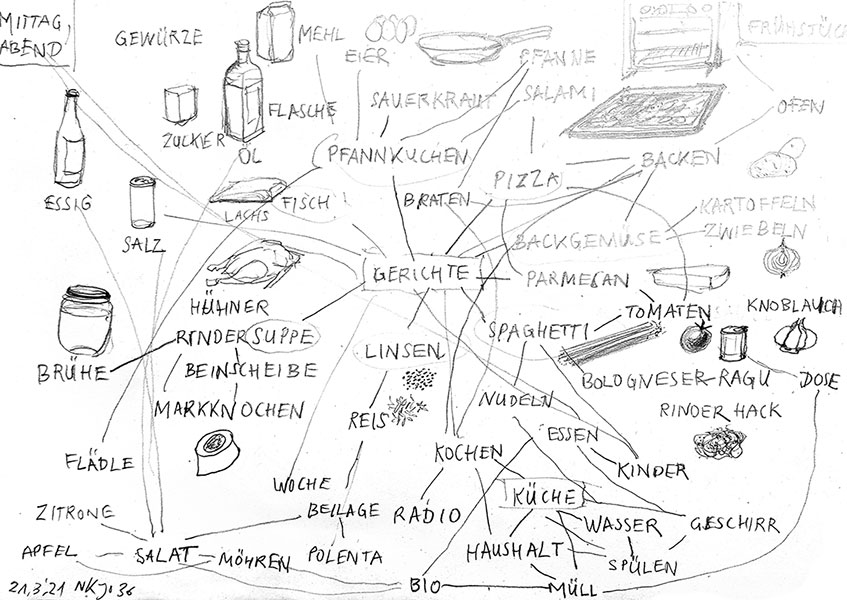 MITTAG,
ABEND
GEWÜRZE
MEHL
EIER
PFANNE
FRÜHSTÜCK
FLASCHE
SAUERKRAUT
SALAMI
OFEN
ZUCKER
ÖL
PFANNKUCHEN
PIZZA
BACKEN
ESSIG
LACHS
FISCH
BRATEN
KARTOFFELN
SALZ
BACKGEMÜSE
ZWIEBELN
GERICHTE
PARMESAN
HÜHNER
TOMATEN
KNOBLAUCH
RINDER SUPPE
SPAGHETTI
LINSEN
BRÜHE
BEINSCHEIBE
BOLOGNESER-RAGU
DOSE
MARKKNOCHEN
REIS
NUDELN
RINDER HACK
ESSEN
FLÄDLE
KOCHEN
KINDER
WOCHE
KÜCHE
ZITRONE
BEILAGE
RADIO
WASSER
GESCHIRR
APFEL
SALAT
MÖHREN
POLENTA
HAUSHALT
SPÜLEN
BIO
MÜLL